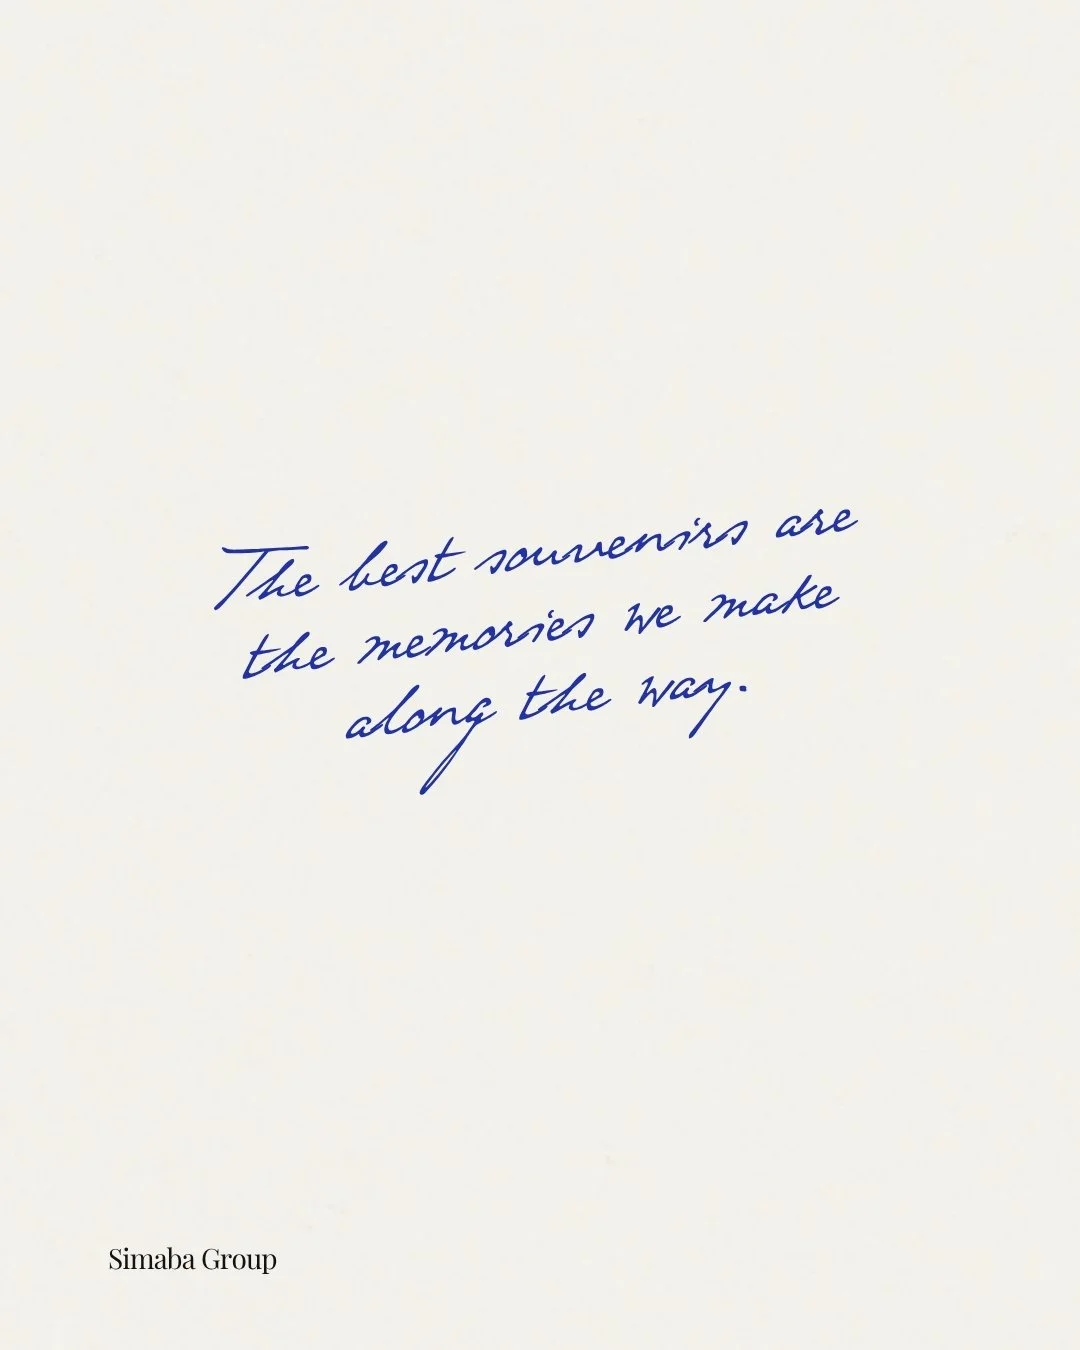 The best souvenirs are
the memories we make
along the way.
Simaba Group